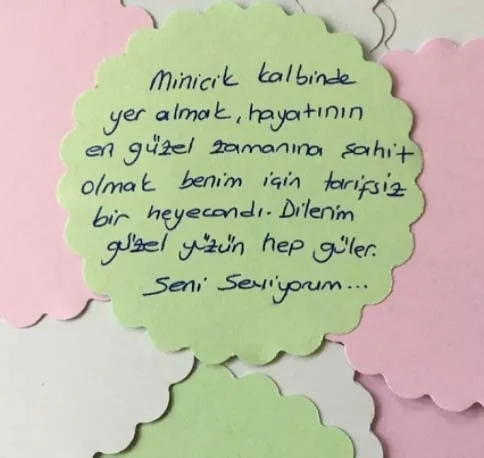 Minicik kalbinde
yer almak, hayatının
en güzel zamanına şahit
olmak benim için tarifsiz
bir heyecandı. Dilerim
güzel yüzün hep güler.
Seni Seviyorum...